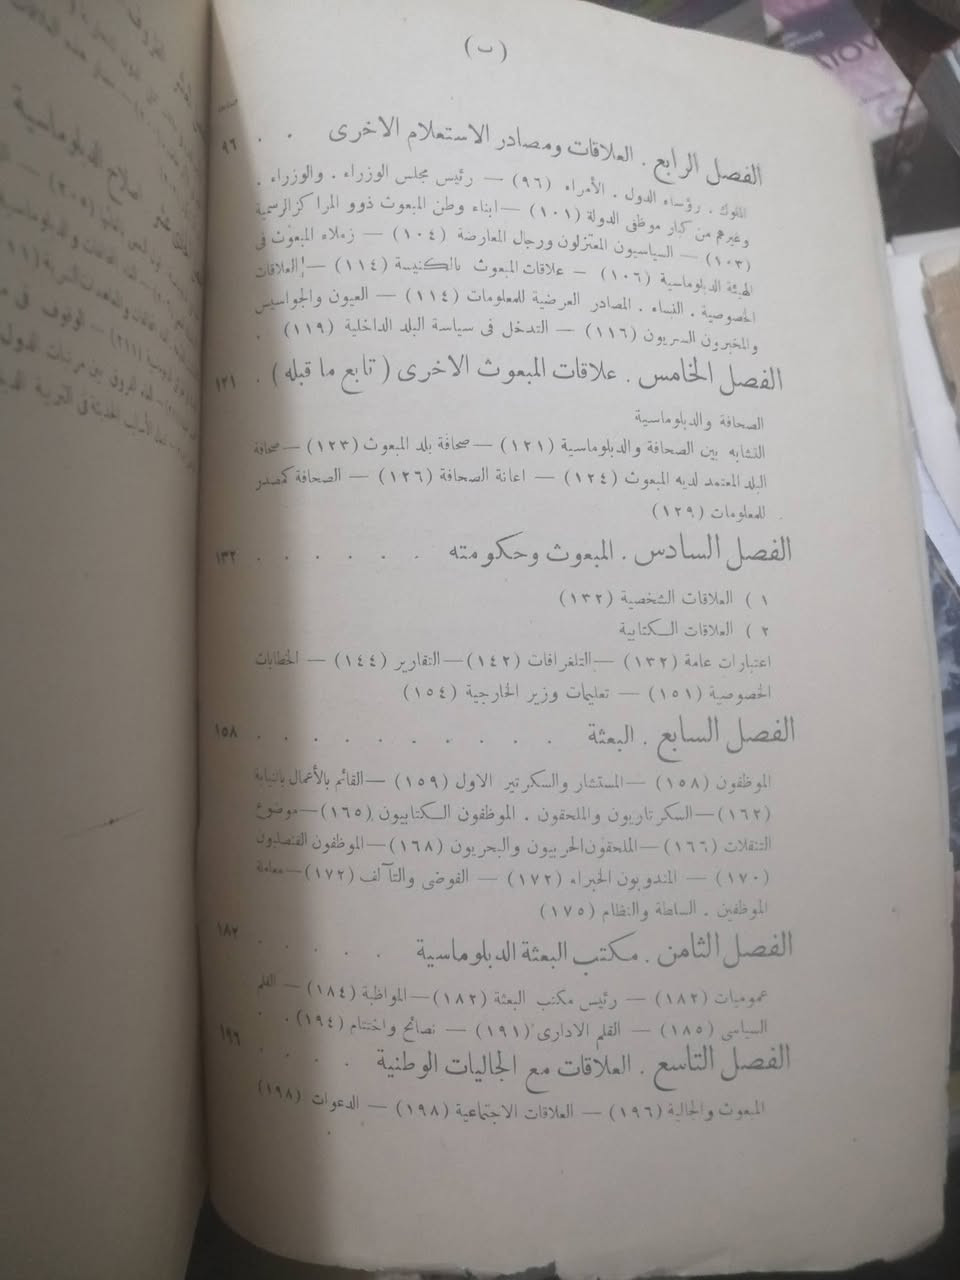 (ب)
صفحة
الفصل الرابع . العلاقات ومصادر الاستعلام الاخرى . . ٩٦
الملوك . رؤساء الدول . الأمراء (٩٦) — رئيس مجلس الوزراء . والوزراء .
وغيرهم من كبار موظفى الدولة (١٠١) — ابناء وطن المبعوث ذوو المراكز الرسمية
(١٠٣) — السياسيون المعتزلون ورجال المعارضة (١٠٤) — زملاء المبعوث فى
الهيئة الدبلوماسية (١٠٦) — علاقات المبعوث بالكنيسة (١١٤) — العلاقات
الخصوصية . النساء . المصادر العرضية للمعلومات (١١٤) — العيون والجواسيس
والمخبرون السريون (١١٦) — التدخل فى سياسة البلد الداخلية (١١٩) .
الفصل الخامس . علاقات المبعوث الاخرى (تابع ما قبله) . ١٢١
الصحافة والدبلوماسية
التشابه بين الصحافة والدبلوماسية (١٢١) — صحافة بلد المبعوث (١٢٣) — صحافة
البلد المعتمد لديه المبعوث (١٢٤) — اعانة الصحافة (١٢٦) — الصحافة كمصدر
للمعلومات (١٢٩)
الفصل السادس . المبعوث وحكومته . . . . . . ١٣٢
١) العلاقات الشخصية (١٣٢)
٢) العلاقات الكتابية
اعتبارات عامة (١٣٢) — التلغرافات (١٤٢) — التقارير (١٤٤) — الخطابات
الخصوصية (١٥١) — تعليمات وزير الخارجية (١٥٤)
الفصل السابع . البعثة . . . . . . . . . . ١٥٨
الموظفون (١٥٨) — المستشار والسكرتير الاول (١٥٩) — القائم بالأعمال بالنيابة
(١٦٢) — السكرتاريون والملحقون . الموظفون الكتابيون (١٦٥) — موضوع
التنقلات (١٦٦) — الملحقون الحربيون والبحريون (١٦٨) — الموظفون القنصليون
(١٧٠) — المندوبون الخبراء (١٧٢) — الفوضى والتآلف (١٧٢) — معاملة
الموظفين . السلطة والنظام (١٧٥)
الفصل الثامن . مكتب البعثة الدبلوماسية . . . . ١٨٢
عموميات (١٨٢) — رئيس مكتب البعثة (١٨٢) — المواظبة (١٨٤) — القلم
السياسى (١٨٥) — القلم الادارى (١٩١) — نصائح واختتام (١٩٤) . .
الفصل التاسع . العلاقات مع الجاليات الوطنية . . . . ١٩٦
المبعوث والجالية (١٩٦) — العلاقات الاجتماعية (١٩٨) — الدعوات (١٩٨)